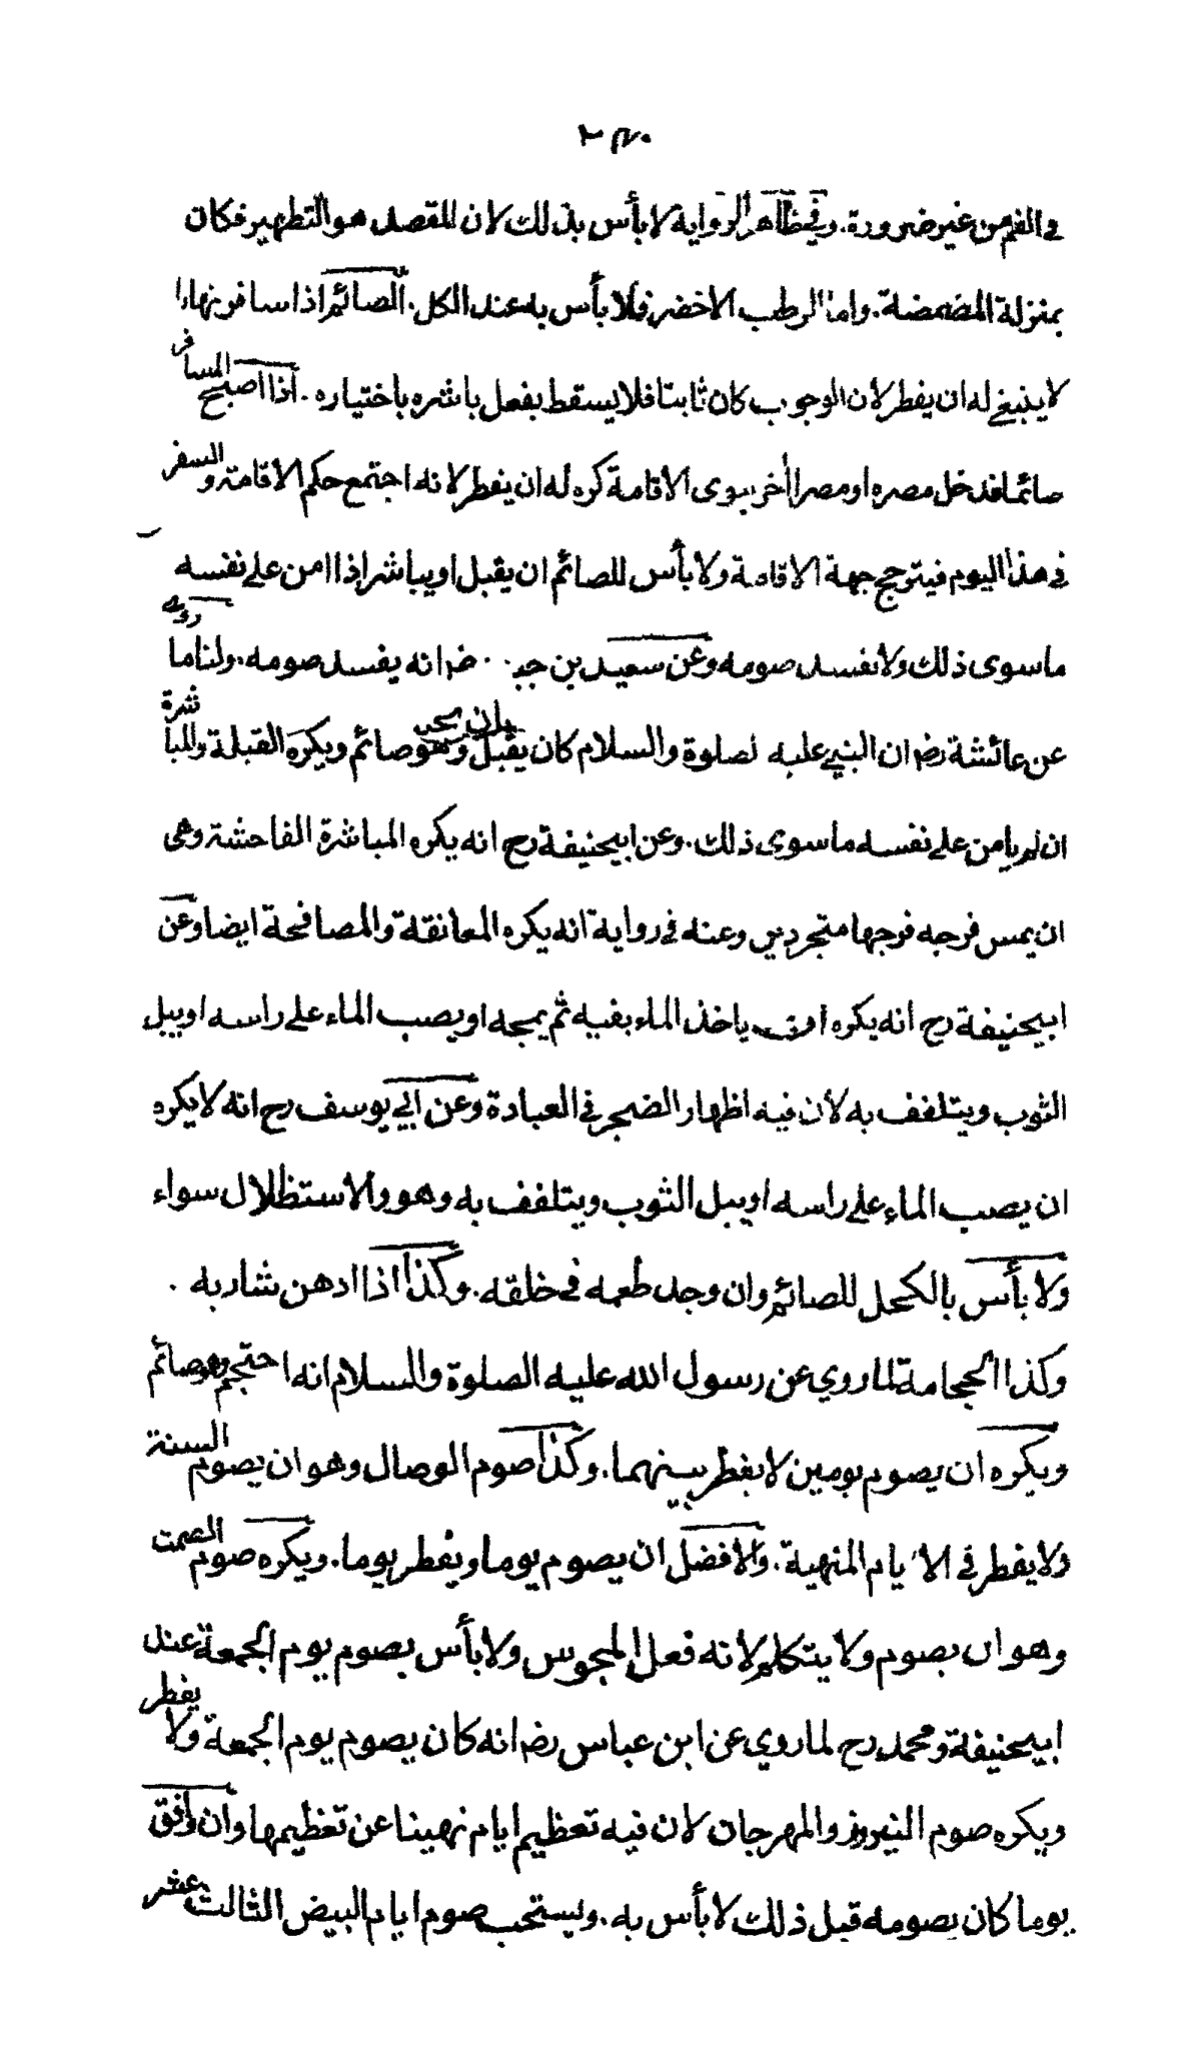 ٢٣٠
في الفم من غير ضرورة. وفي ظاهر الرواية لا بأس بذلك لان المقصد هو التطهير فكان
بمنزلة المضمضة. واما الرطب الاخضر فلا بأس به عند الكل. الصائم اذا سافر نهارا
لا ينبغي له ان يفطر لان الوجوب كان ثابتا فلا يسقط بفعل باشره باختياره. اذا اصبح المسافر
صائما فدخل مصره او مصرا أخر ينوى الاقامة كره له ان يفطر لانه اجتمع حكم الاقامة والسفر
في هذا اليوم فيترجح جهة الاقامة ولا بأس للصائم ان يقبل او يباشر اذا امن على نفسه
ما سوى ذلك ولا يفسد صومه وعن سعيد بن جبير رض انه يفسد صومه. ولنا ما روي
عن عائشة رض ان النبي عليه الصلوة والسلام كان يقبل وهو صائم ويكره القبلة والمباشرة
ان لم يامن على نفسه ما سوى ذلك. وعن ابيحنيفة رح انه يكره المباشرة الفاحشة وهى
ان يمس فرجه فرجها متجردين وعنه في رواية انه يكره المعانقة والمصافحة ايضا وعن
ابيحنيفة رح انه يكره ان ياخذ الماء بفيه ثم يمجه او يصب الماء على راسه او يبل
الثوب ويتلفف به لان فيه اظهار الضجر في العبادة وعن ابي يوسف رح انه لا يكره
ان يصب الماء على راسه او يبل الثوب ويتلفف به وهو والاستظلال سواء
ولا بأس بالكحل للصائم وان وجد طعمه في خلقه. وكذا اذا ادهن شاربه .
وكذا الحجامة لما روي عن رسول الله عليه الصلوة والسلام انه احتجم وهو صائم
ويكره ان يصوم يومين لا يفطر بينهما. وكذا صوم الوصال وهو ان يصوم السنة
ولا يفطر في الايام المنهية. والافضل ان يصوم يوما ويفطر يوما. ويكره صوم الصمت
وهو ان يصوم ولا يتكلم لانه فعل المجوس ولا بأس بصوم يوم الجمعة عند
ابيحنيفة ومحمد رح لما روي عن ابن عباس رض انه كان يصوم يوم الجمعة ولا يفطر
ويكره صوم النيروز والمهرجان لان فيه تعظيم ايام نهينا عن تعظيمها وان وافق
يوما كان يصومه قبل ذلك لا بأس به. ويستحب صوم ايام البيض الثالث عشر